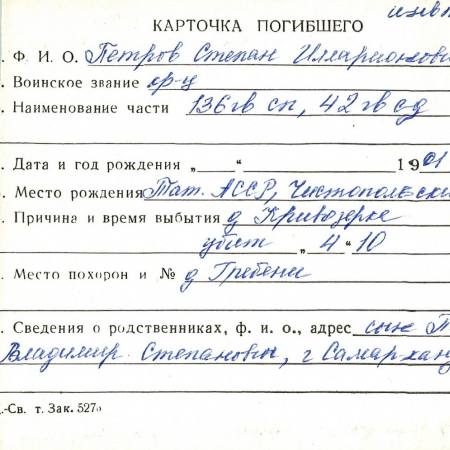 КАРТОЧКА ПОГИБШЕГО
Ф. И О. Петров Степан Илларионови
Воинское звание кр-ц
Наименование части 136 гв сп, 42 гв сд
Дата и год рождения „ “ 1901
Место рождения Тат. АССР, Чистопольски
Причина и время выбытия д Кривозерке
убит „ 4 “ 10
Место похорон и № д Гребени
Сведения о родственниках, ф. и о., адрес сын П
Владимир Степановы, г Самарканд
-Св. т. Зак. 527